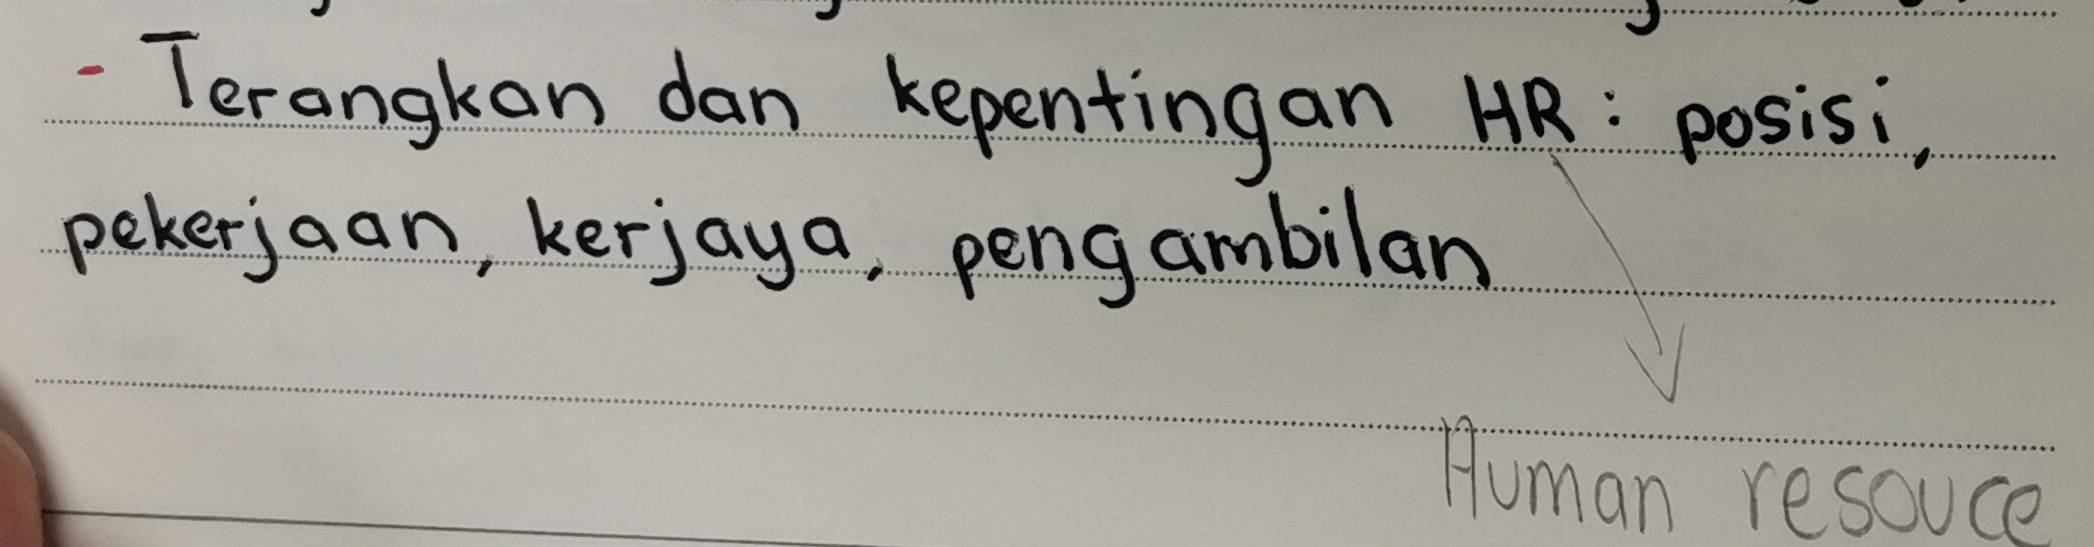 - Terangkan dan kepentingan HR : posisi,
pekerjaan, kerjaya, pengambilan
Human resouce